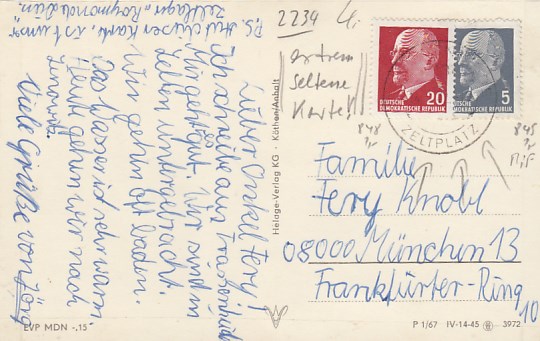 P.S. Auf dieser Karte ist unser
Zeltlager „Raymonde Dien".
Lieber Onkel Fery!
Ich schreibe aus
Wir sind in
Zelten untergebracht.
Wir gehen oft baden.
Das Wasser ist sehr warm
Heute gehen wir nach
Zinnowitz.
Viele Grüße von Jörg
EVP MDN -,15
Helage-Verlag KG · Köthen/Anhalt
2234
extrem
seltene
Karte!
DEUTSCHE
DEMOKRATISCHE REPUBLIK
20
DEUTSCHE
DEMOKRATISCHE REPUBLIK
5
ZELTPLATZ
848
845
MiF
Familie
Fery Knobl
08000 München 13
Frankfurter-Ring
10
P 1/67 IV-14-45 3972